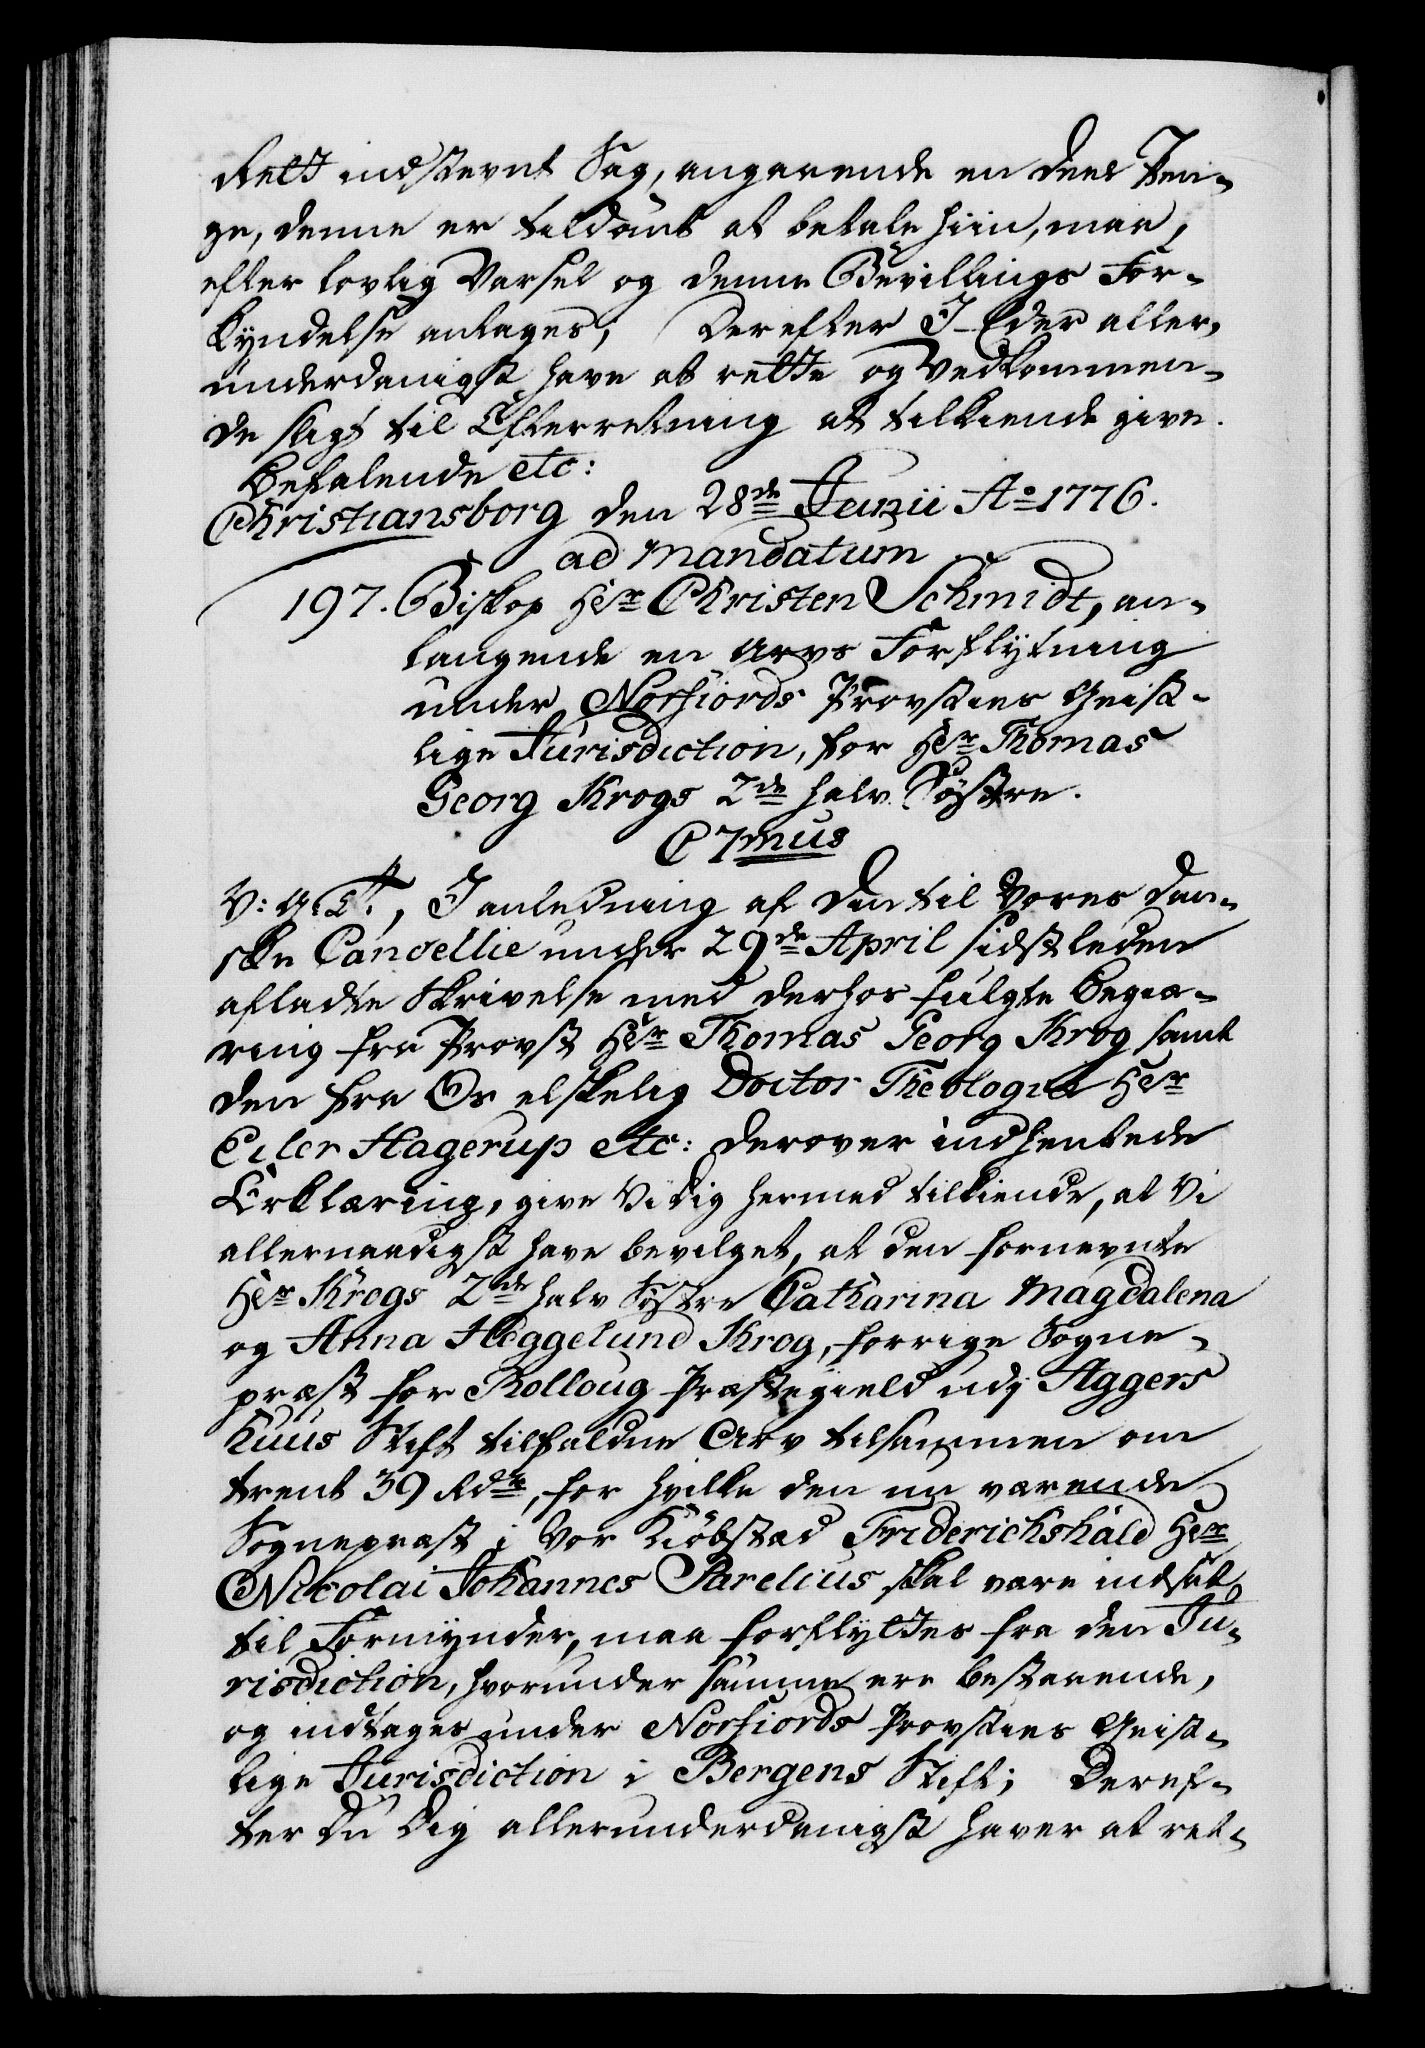 Rett indstevnt Sag, angaaende en deel Pen-
ge, denne er tildømt at betale hiin, maa,
efter lovlig Varsel og denne Bevillings For-
kyndelse antages; Derefter I Eder aller-
underdanigst have at rette og Vedkommen-
de sligt til Efterretning at tilkiende give.
Befalende etc:
Christiansborg den 28de Junii Ao 1776.
ad Mandatum
197. Biskop Hr Christen Schmidt, an-
langende en Arvs Forflytning
under Norfiords Provsties Geist-
lige Jurisdiction, for Hr Thomas
Georg Krogs 2de halv Søstre.
C 7mus
V: G: T:, I anledning af din til Vores Dan-
ske Cancellie under 29de April sidstleden
afladte Skrivelse med derhos fulgte Begiæ-
ring fra Provst Hr Thomas Georg Krog samt
den fra Os elskelig Doctor Theologiæ Hr
Eiler Hagerup etc: derover indhentede
Erklæring, give Vi dig hermed tilkiende, at Vi
allernaadigst have bevilget, at den fornevnte
Hr Krogs 2de halv Søstre Catharina Magdalena
og Anna Heggelund Krog, forrige Sogne-
præst for Rolloug Præstegield udj Aggers
huus Stift tilfaldne Arv tilsammen om
trent 39 Rdr, for hvilke den nu værende
Sognepræst i Vor Kiøbstæd Friderichshald Hr
Nicolai Johannes Parelius skal være indsat
til Formynder, maa forflyttes fra den Ju-
risdiction, hvorunder samme ere bestaaende,
og indtages under Norfiords Provsties Geist-
lige Jurisdiction i Bergens Stift; Deref-
ter Du Dig allerunderdanigst haver at ret-